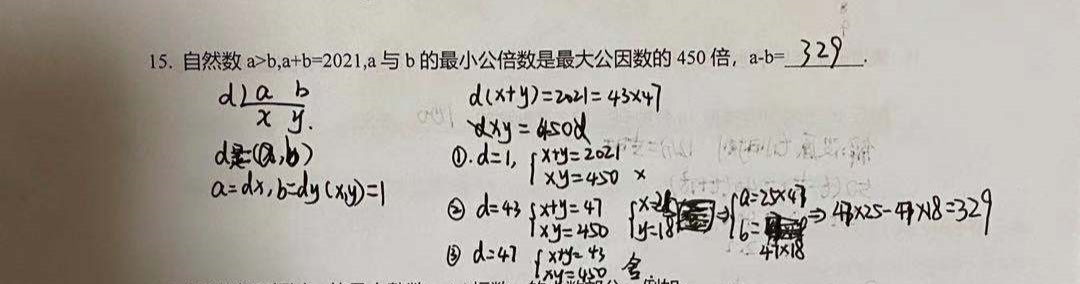 15. 自然数 a>b,a+b=2021,a 与 b 的最小公倍数是最大公因数的 450 倍，a-b= 329 .
d a b
x y.
d=(a,b)
a=dx,b=dy (x,y)=1
d(x+y)=2021=43×47
dxy=450d
①. d=1, x+y=2021
xy=450 ×
② d=43 x+y=47
xy=450
y=18
⇒ a=25×47
b= 47×18
⇒ 47×25-47×18=329
③ d=47 x+y=43
xy=450 舍